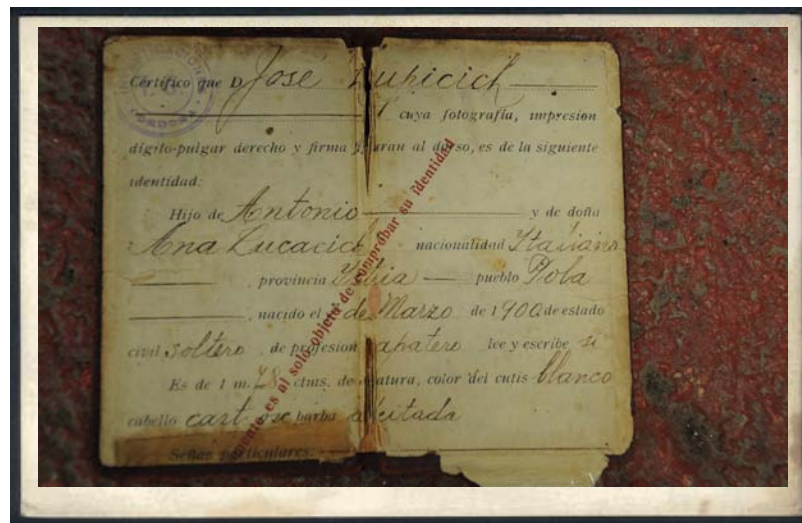 Certifico que D José
cuya fotografía, impresion
dígito-pulgar derecho y firma al dorso, es de la siguiente
identidad:
Hijo de Antonio y de doña
Ana Lucacich nacionalidad Italiana
provincia pueblo Pola
nacido el de Marzo de 1900 de estado
civil soltero de profesion zapatero lee y escribe si
Es de 1 m. 78 ctms. de estatura, color del cutis blanco
cabello cast. barba afeitada
Señas particulares:
es al solo objeto de comprobar su identidad
INVESTIGACIONES